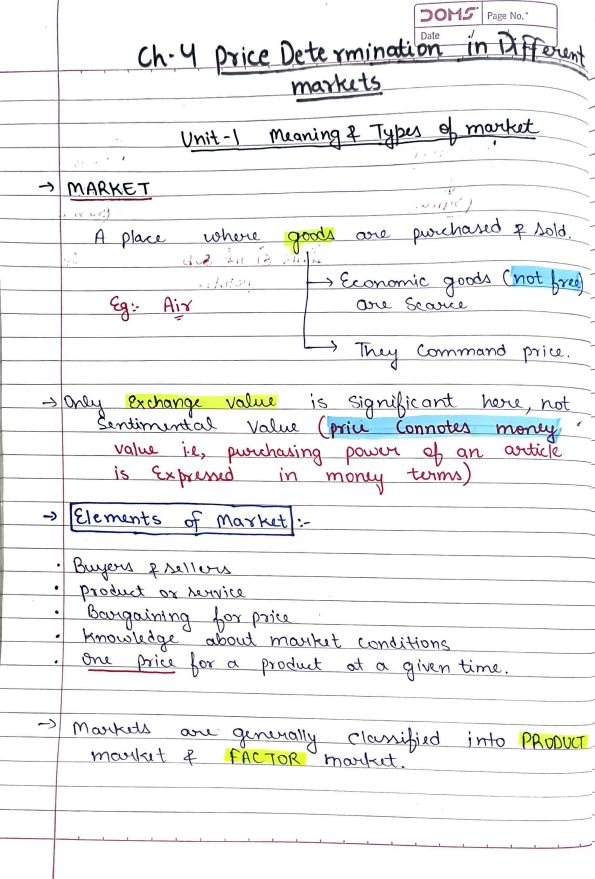 DOMS Page No.
Date
Ch-4 Price Determination in Different
markets
Unit-1 Meaning & Types of market
→ MARKET
A place where goods are purchased & sold.
→ Economic goods (not free)
are scarce
Eg:- Air
→ They command price.
→ Only exchange value is significant here, not
sentimental value (price connotes money
value i.e, purchasing power of an article
is expressed in money terms)
→ Elements of Market :-
• Buyers & sellers
• product or service
• Bargaining for price
• Knowledge about market conditions
• One price for a product at a given time.
→ Markets are generally classified into PRODUCT
market & FACTOR market.